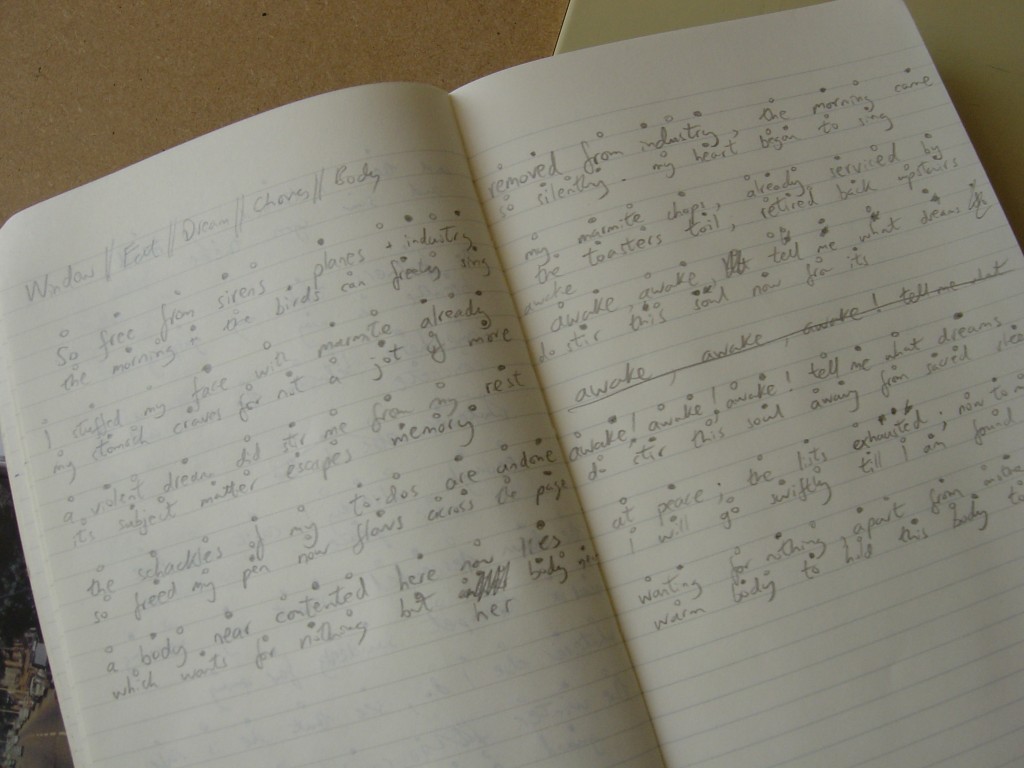 Window // Eat // Dream // Chores // Body
So free from sirens, planes & industry
the morning: the birds can freely sing
I stuffed my face with marmite already
my stomach craves for not a jot of more
a violent dream did stir me from my rest
it's subject matter escapes memory
the schackles of my to-dos are undone
so freed my pen now flows across the page
a body near contented here now lies
which wants for nothing but body
her
removed from industry, the morning came
so silently. my heart began to sing
my marmite chops, already serviced by
the toasters toil, retired back upstairs
awake
awake, awake, tell me what dreams
do stir this soul now from its
awake, awake, awake! tell me what
awake! awake! awake! tell me what dreams
do stir this soul away from sacred
at peace; the lists exhausted; now to
I will go swiftly till I am found
wanting for nothing, apart from
warm body to hold this body